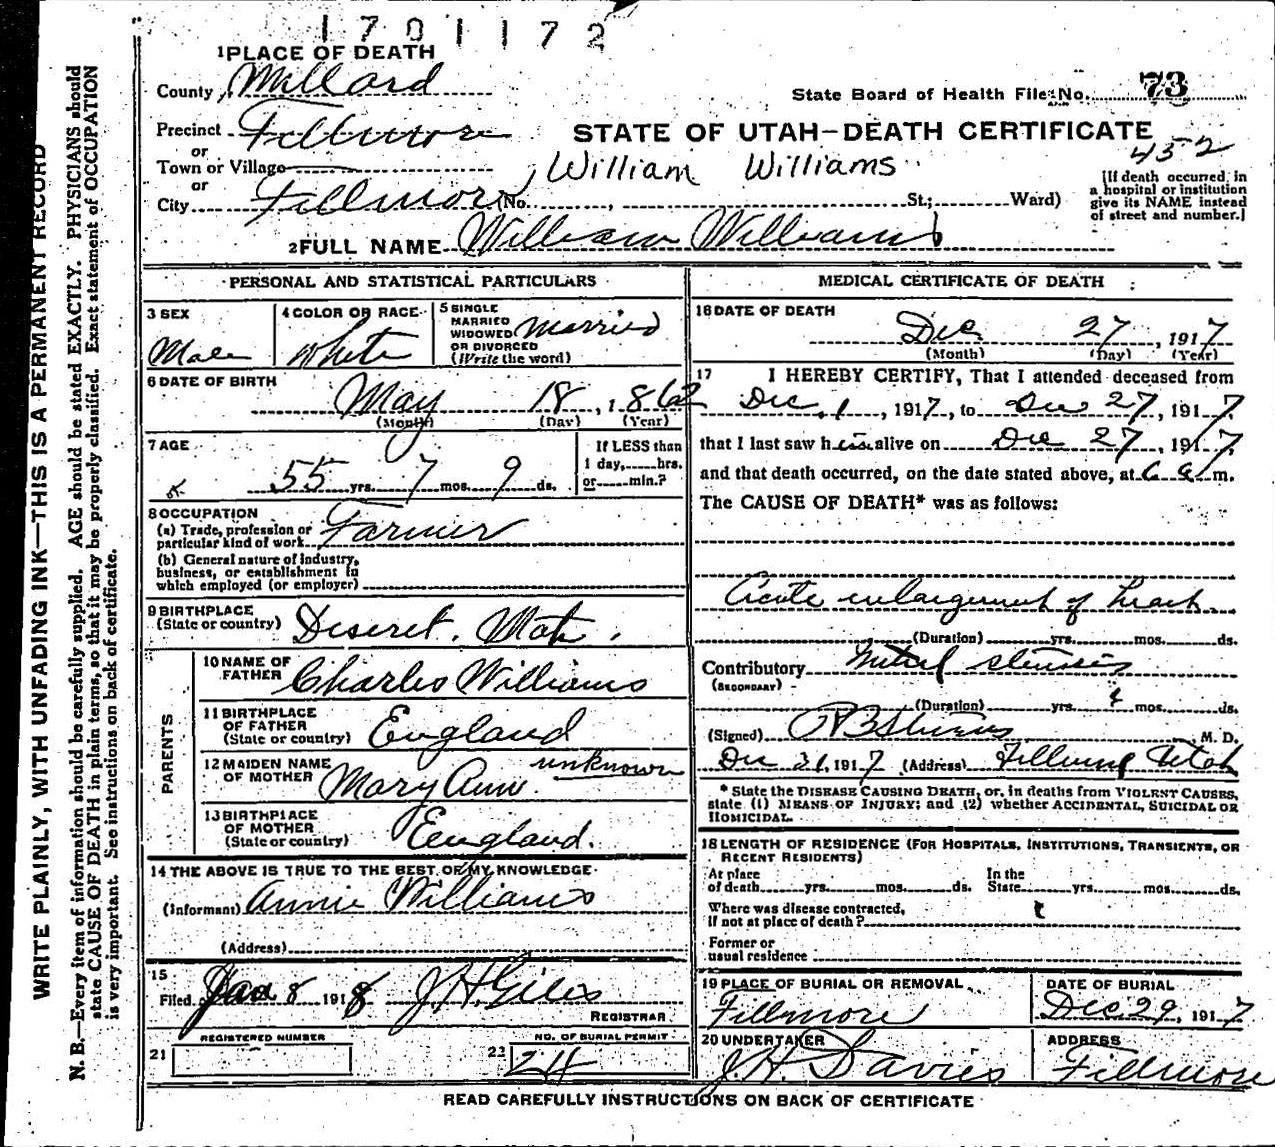 1701172
1 PLACE OF DEATH
County Millard
State Board of Health File No. 73
Precinct Fillmore
STATE OF UTAH—DEATH CERTIFICATE
or
452
Town or Village
William Williams
or
City Fillmore (No. , St.; Ward)
[If death occurred in a hospital or institution give its NAME instead of street and number.]
2 FULL NAME William Williams
PERSONAL AND STATISTICAL PARTICULARS
3 SEX
Male
4 COLOR OR RACE
White
5 SINGLE
MARRIED
WIDOWED
OR DIVORCED
(Write the word)
Married
6 DATE OF BIRTH
May 18, 1862
(Month) (Day) (Year)
7 AGE
55 yrs. 7 mos. 9 ds.
If LESS than
1 day, hrs.
or min.?
8 OCCUPATION
(a) Trade, profession or
particular kind of work Farmer
(b) General nature of industry,
business, or establishment in
which employed (or employer)
9 BIRTHPLACE
(State or country) Deseret.
PARENTS
10 NAME OF
FATHER Charles Williams
11 BIRTHPLACE
OF FATHER
(State or country) England
12 MAIDEN NAME
OF MOTHER Mary Ann unknown
13 BIRTHPLACE
OF MOTHER
(State or country) England.
14 THE ABOVE IS TRUE TO THE BEST OF MY KNOWLEDGE
(Informant) Annie Williams
(Address)
15
Filed Jan 8 1918 J. H. Giles
REGISTRAR
REGISTERED NUMBER
21
NO. OF BURIAL PERMIT
22 24
MEDICAL CERTIFICATE OF DEATH
16 DATE OF DEATH
Dec 27, 1917
(Month) (Day) (Year)
17 I HEREBY CERTIFY, That I attended deceased from
Dec. 1, 1917, to Dec 27, 1917,
that I last saw him alive on Dec 27, 1917
and that death occurred, on the date stated above, at 6 a m.
The CAUSE OF DEATH* was as follows:
Acute enlargement of heart.
(Duration) yrs. mos. ds.
Contributory Mitral stenosis
(SECONDARY)
(Duration) yrs. mos. ds.
(Signed) R B Stevens M. D.
Dec 31, 1917 (Address) Fillmore Utah
* State the DISEASE CAUSING DEATH, or, in deaths from VIOLENT CAUSES,
state (1) MEANS OF INJURY; and (2) whether ACCIDENTAL, SUICIDAL OR
HOMICIDAL.
18 LENGTH OF RESIDENCE (FOR HOSPITALS, INSTITUTIONS, TRANSIENTS, OR
RECENT RESIDENTS)
At place
of death yrs. mos. ds.
In the
State yrs. mos. ds.
Where was disease contracted,
if not at place of death?
Former or
usual residence
19 PLACE OF BURIAL OR REMOVAL
Fillmore
DATE OF BURIAL
Dec 29, 1917
20 UNDERTAKER
J. H. Davies
ADDRESS
Fillmore
READ CAREFULLY INSTRUCTIONS ON BACK OF CERTIFICATE
WRITE PLAINLY, WITH UNFADING INK—THIS IS A PERMANENT RECORD
N. B.—Every item of information should be carefully supplied. AGE should be stated EXACTLY. PHYSICIANS should
state CAUSE OF DEATH in plain terms, so that it may be properly classified. Exact statement of OCCUPATION
is very important. See instructions on back of certificate.